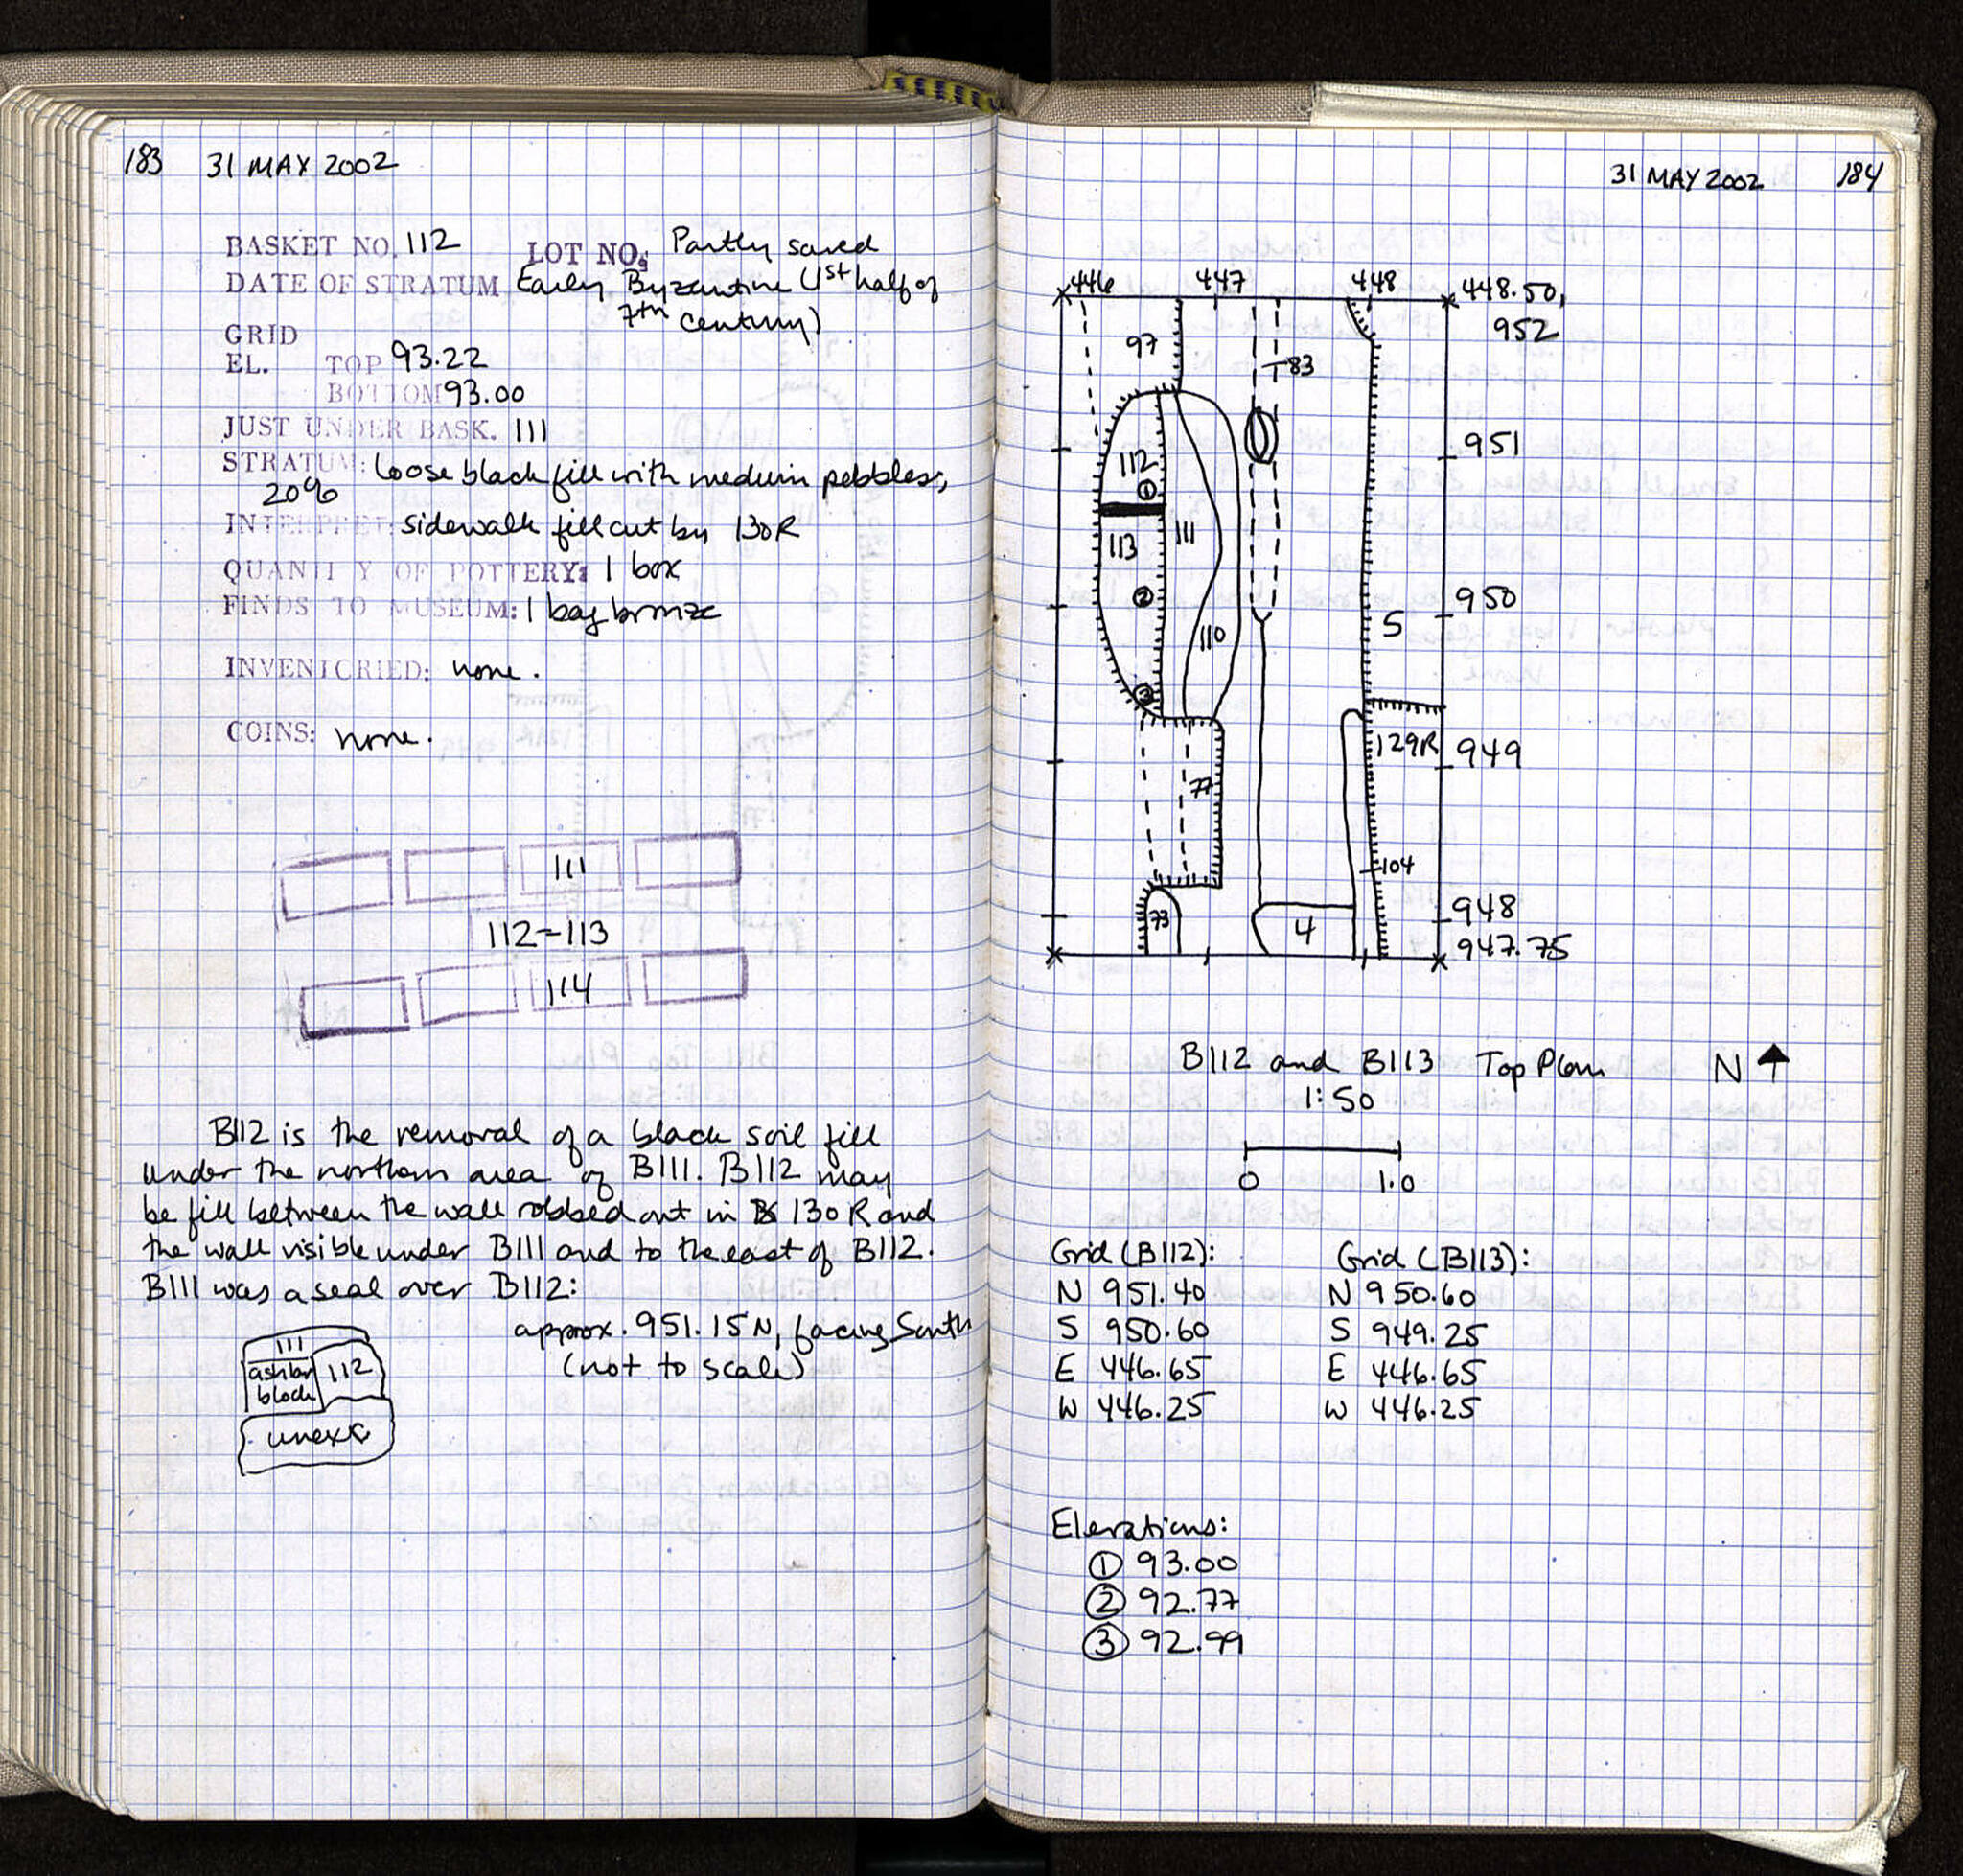 183 31 MAY 2002
BASKET NO. 112 LOT NO: Partly saved
DATE OF STRATUM Early Byzantine (1st half of
7th century)
GRID
EL. TOP 93.22
BOTTOM 93.00
JUST UNDER BASK. 111
STRATUM: loose black fill with medium pebbles,
20%
INTERPRET: sidewalk fill cut by 130R
QUANTITY OF POTTERY: 1 box
FINDS TO MUSEUM: 1 bag bronze
INVENTORIED: none.
COINS: none.
111
112-113
114
B112 is the removal of a black soil fill
under the northern area of B111. B112 may
be fill between the wall robbed out in 130R and
the wall visible under B111 and to the east of B112.
B111 was a seal over B112:
approx. 951.15N, facing South
(not to scale)
111
ashlar 112
block
unexc
31 MAY 2002 184
446 447 448 448.50,
952
97
83
951
112
①
113 111
②
950
110 5
③
129R 949
77
104
73 4 948
947.75
B112 and B113 Top Plan N
1:50
0 1.0
Grid (B112): Grid (B113):
N 951.40 N 950.60
S 950.60 S 949.25
E 446.65 E 446.65
W 446.25 W 446.25
Elevations:
① 93.00
② 92.77
③ 92.99